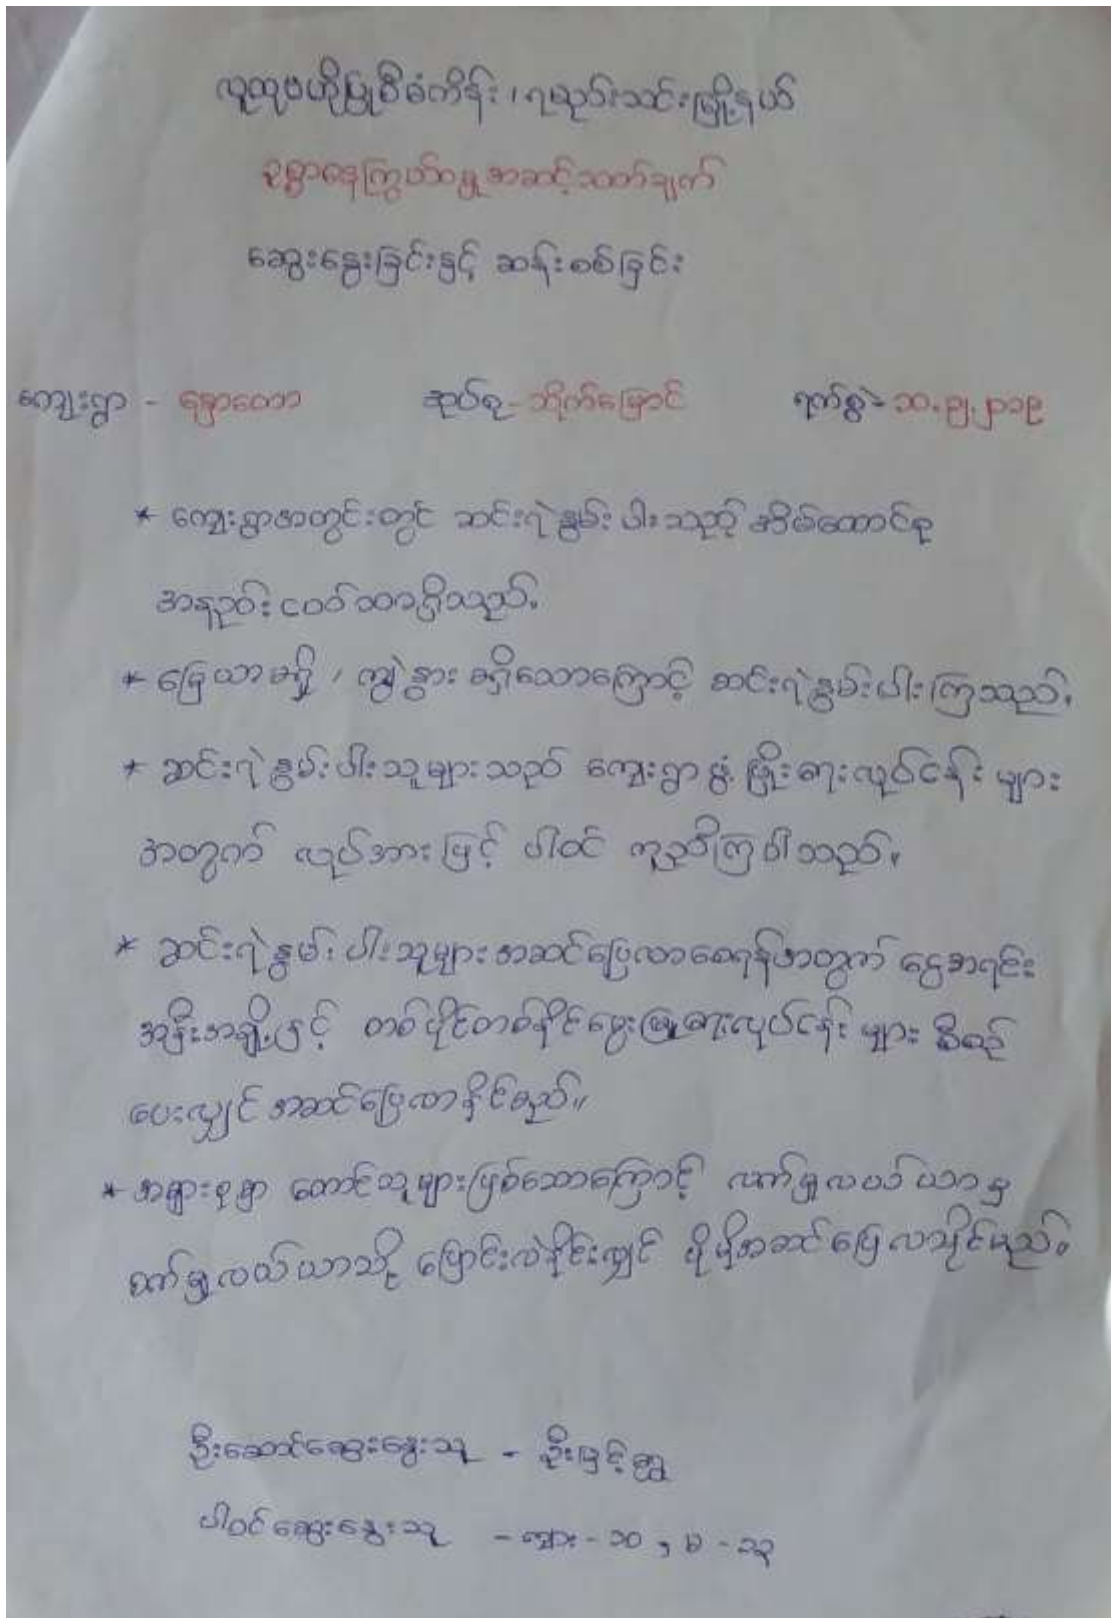 လူထုဗဟိုပြုစီမံကိန်း၊ ရမည်းသင်းမြို့နယ်
ဥစ္စာနေကြွယ်ဝမှုအဆင့်သတ်မှတ်ချက်
ဆွေးနွေးခြင်းနှင့် ဆန်းစစ်ခြင်း
ကျေးရွာ - အုပ်စု - ရက်စွဲ - ၁၀.၉.၂၀၁၉
* ကျေးရွာအတွင်းတွင် ဆင်းရဲနွမ်းပါးသည့် အိမ်ထောင်စု
အနည်းငယ်သာရှိသည်။
* မြေယာမရှိ၊ ကျွဲနွားမရှိသောကြောင့် ဆင်းရဲနွမ်းပါးကြသည်။
* ဆင်းရဲနွမ်းပါးသူများသည် ကျေးရွာဖွံ့ဖြိုးရေးလုပ်ငန်းများ
အတွက် လုပ်အားဖြင့် ပါဝင် ကူညီကြပါသည်။
* ဆင်းရဲနွမ်းပါးသူများ အဆင်ပြေလာစေရန်အတွက် ငွေအရင်း
အနှီးအချို့ဖြင့် တစ်ပိုင်တစ်နိုင်မွေးမြူရေးလုပ်ငန်းများ စီစဉ်
ပေးလျှင် အဆင်ပြေလာနိုင်မည်။
* တောင်သူများဖြစ်သောကြောင့် လက်မှုလယ်ယာမှ
စက်မှုလယ်ယာသို့ ပြောင်းလဲနိုင်လျှင် ပိုမိုအဆင်ပြေလာနိုင်မည်။
ဦးဆောင်ဆွေးနွေးသူ - ဦးမြင့်
ပါဝင်ဆွေးနွေးသူ - ကျား - ၁၀ ၊ မ - ၁၃